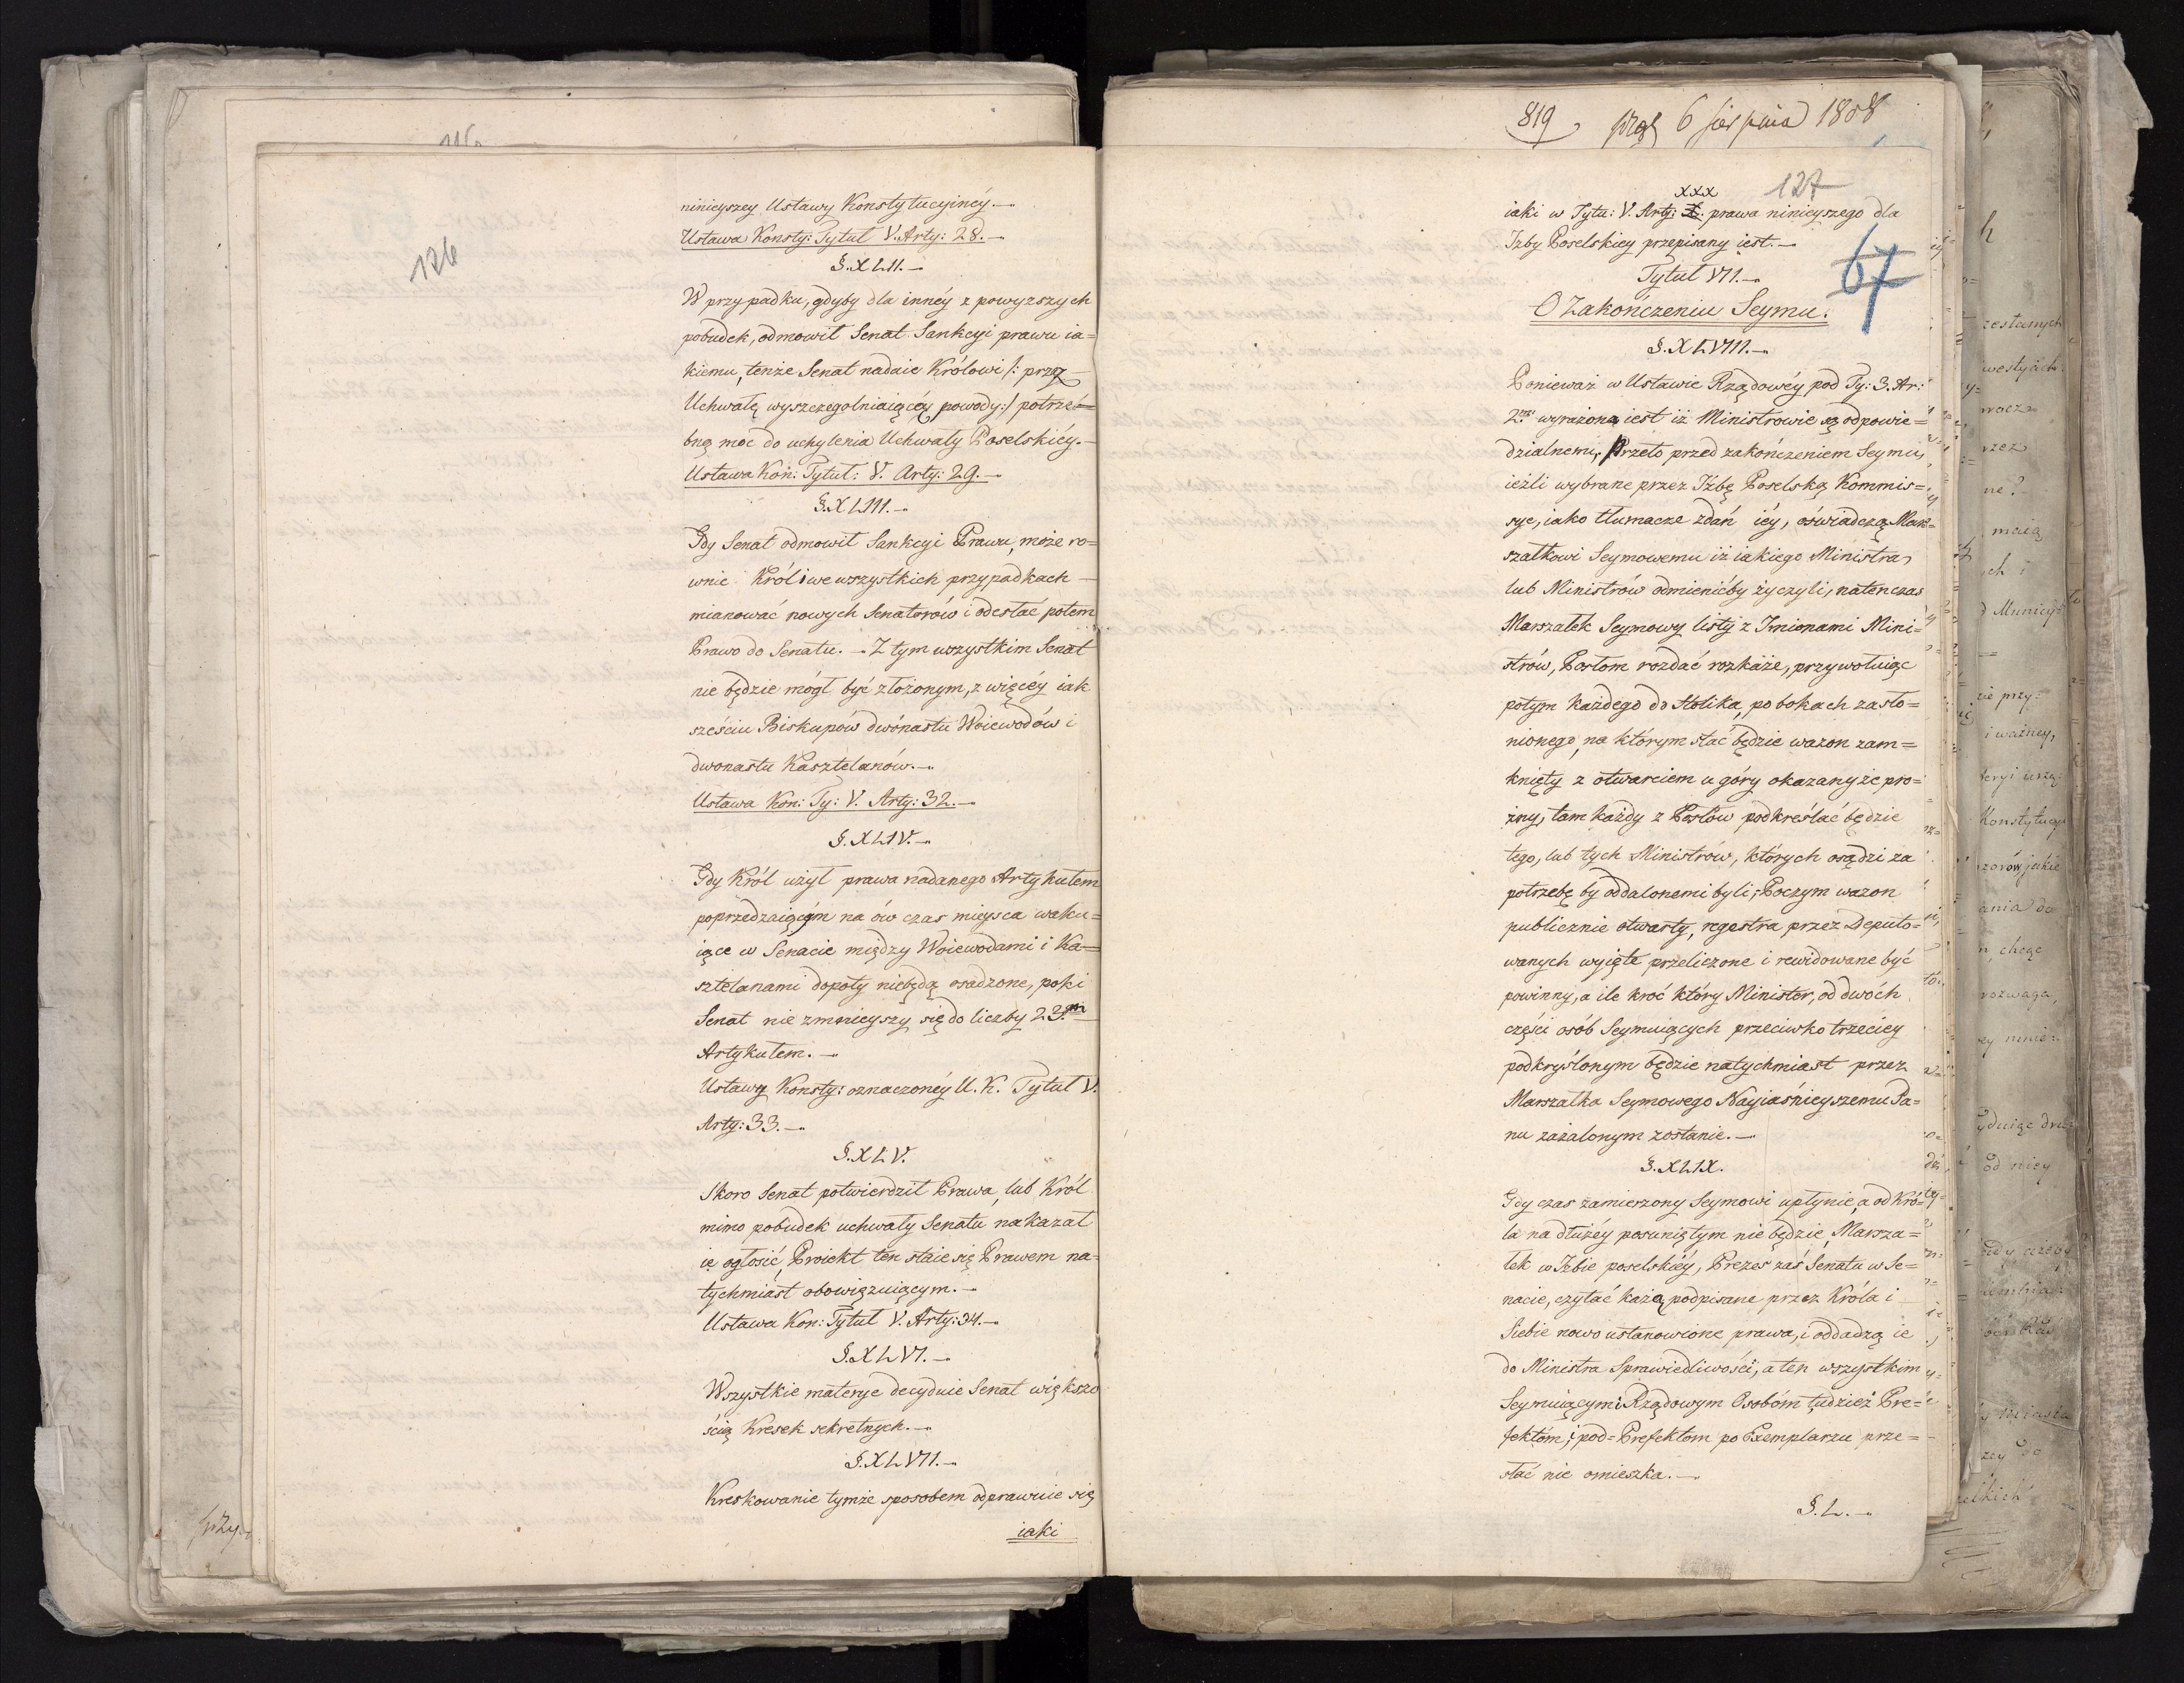 126
ninieyszey Ustawy Konstytucyinéy.—
Ustawa Konsty: Tytuł V. Arty: 28.—
§. XLII.—
W przypadku, gdyby dla innéy z powyzszych
pobudek, odmowił Senat Sankcyi prawu ia=
kiemu, tenże Senat nadaie Królowi /: przez
Uchwałę wyszczegolniaiącą powody :/ potrze=
bną moc do uchylenia Uchwały Poselskiéy.—
Ustawa Kon: Tytuł: V. Arty: 29.—
§. XLIII.—
Gdy Senat odmowił Sankcyi Prawu, może ro=
wnie Król i we wszystkich przypadkach —
mianować nowych Senatorów i odesłać potem
Prawo do Senatu. — Z tym wszystkim Senat
nie będzie mógł być złożonym, z więcéy iak
sześciu Biskupów dwónastu Woiewodów i
dwonastu Kasztelanów.—
Ustawa Kon: Ty: V. Arty: 32.—
§. XLIV.—
Gdy Król użył prawa nadanego Artykułem
poprzedzaiącym na ów czas mieysca waku=
iące w Senacie między Woiewodami i Ka=
sztelanami dopoty niebędą osadzone, poki
Senat nie zmnieyszy się do liczby 23.m
Artykułem.—
Ustawy Konsty: oznaczonéy U. K. Tytuł V.
Arty: 33.—
§. XLV.
Skoro Senat potwierdził Prawa, lub Król
mimo pobudek uchwały Senatu nakazał
ie ogłosić, Proiekt ten staie się Prawem na=
tychmiast obowiązuiącym.—
Ustawa Kon: Tytuł V. Arty: 34.—
§. XLVI.—
Wszystkie materye decyduie Senat większo
ścią Kresek sekretnych.—
§. XLVII.—
Kreskowanie tymże sposobem odprawuie się
iaki
819 6 sierpnia 1808
127
xxx
iaki w Tytu: V. Arty: X. prawa ninieyszego dla
Izby Poselskiey przepisany iest.—
67
Tytuł VII.—
O Zakończeniu Seymu.
§. XLVIII.—
Ponieważ w Ustawie Rządowéy pod Ty: 3. Ar:
2. wyrażono iest iż Ministrowie są odpowie=
dzialnemi, Przeto przed zakończeniem Seymu,
ieżli wybrane przez Izbę Poselską Kommis=
sye, iako tłumacze zdań iéy, oświadczą Mar=
szałkowi Seymowemu iż iakiego Ministra,
lub Ministrów odmienićby życzyli, natenczas
Marszałek Seymowy listy z Imionami Mini=
strów, Posłom rozdać rozkaże, przywołuiąc
potym każdego do Stolika, po bokach zasło=
nionego, na którym stać będzie wazon zam=
knięty z otwarciem u góry okazany że pro=
żny, tam każdy z Posłów podkreślać będzie
tego, lub tych Ministrów, których osądzi za
potrzebę by oddalonemi byli; Poczym wazon
publicznie otwarty, regestra przez Deputo=
wanych wyięte przeliczone i rewidowane być
powinny, a ile kroć który Minister, od dwóch
części osób Seymuiących przeciwko trzeciey
podkryślonym będzie natychmiast przez
Marszałka Seymowego Nayiaśnieyszemu Pa=
nu zażalonym zostanie.—
§. XLIX.
Gdy czas zamierzony Seymowi upłynie, a od Kró=
la na dłużéy posuniętym nie będzie, Marsza=
łek w Izbie poselskiéy, Prezes zaś Senatu w Se=
nacie, czytać każą podpisane przez Króla i
Siebie nowo ustanowione prawa, i oddadzą ie
do Ministra Sprawiedliwości, a ten wszystkim
Seymuiącym i Rządowym Osobóm tudzież Pre=
fektóm, i pod=Prefektom po Exemplarzu prze=
słać nie omieszka.—
§. L.—